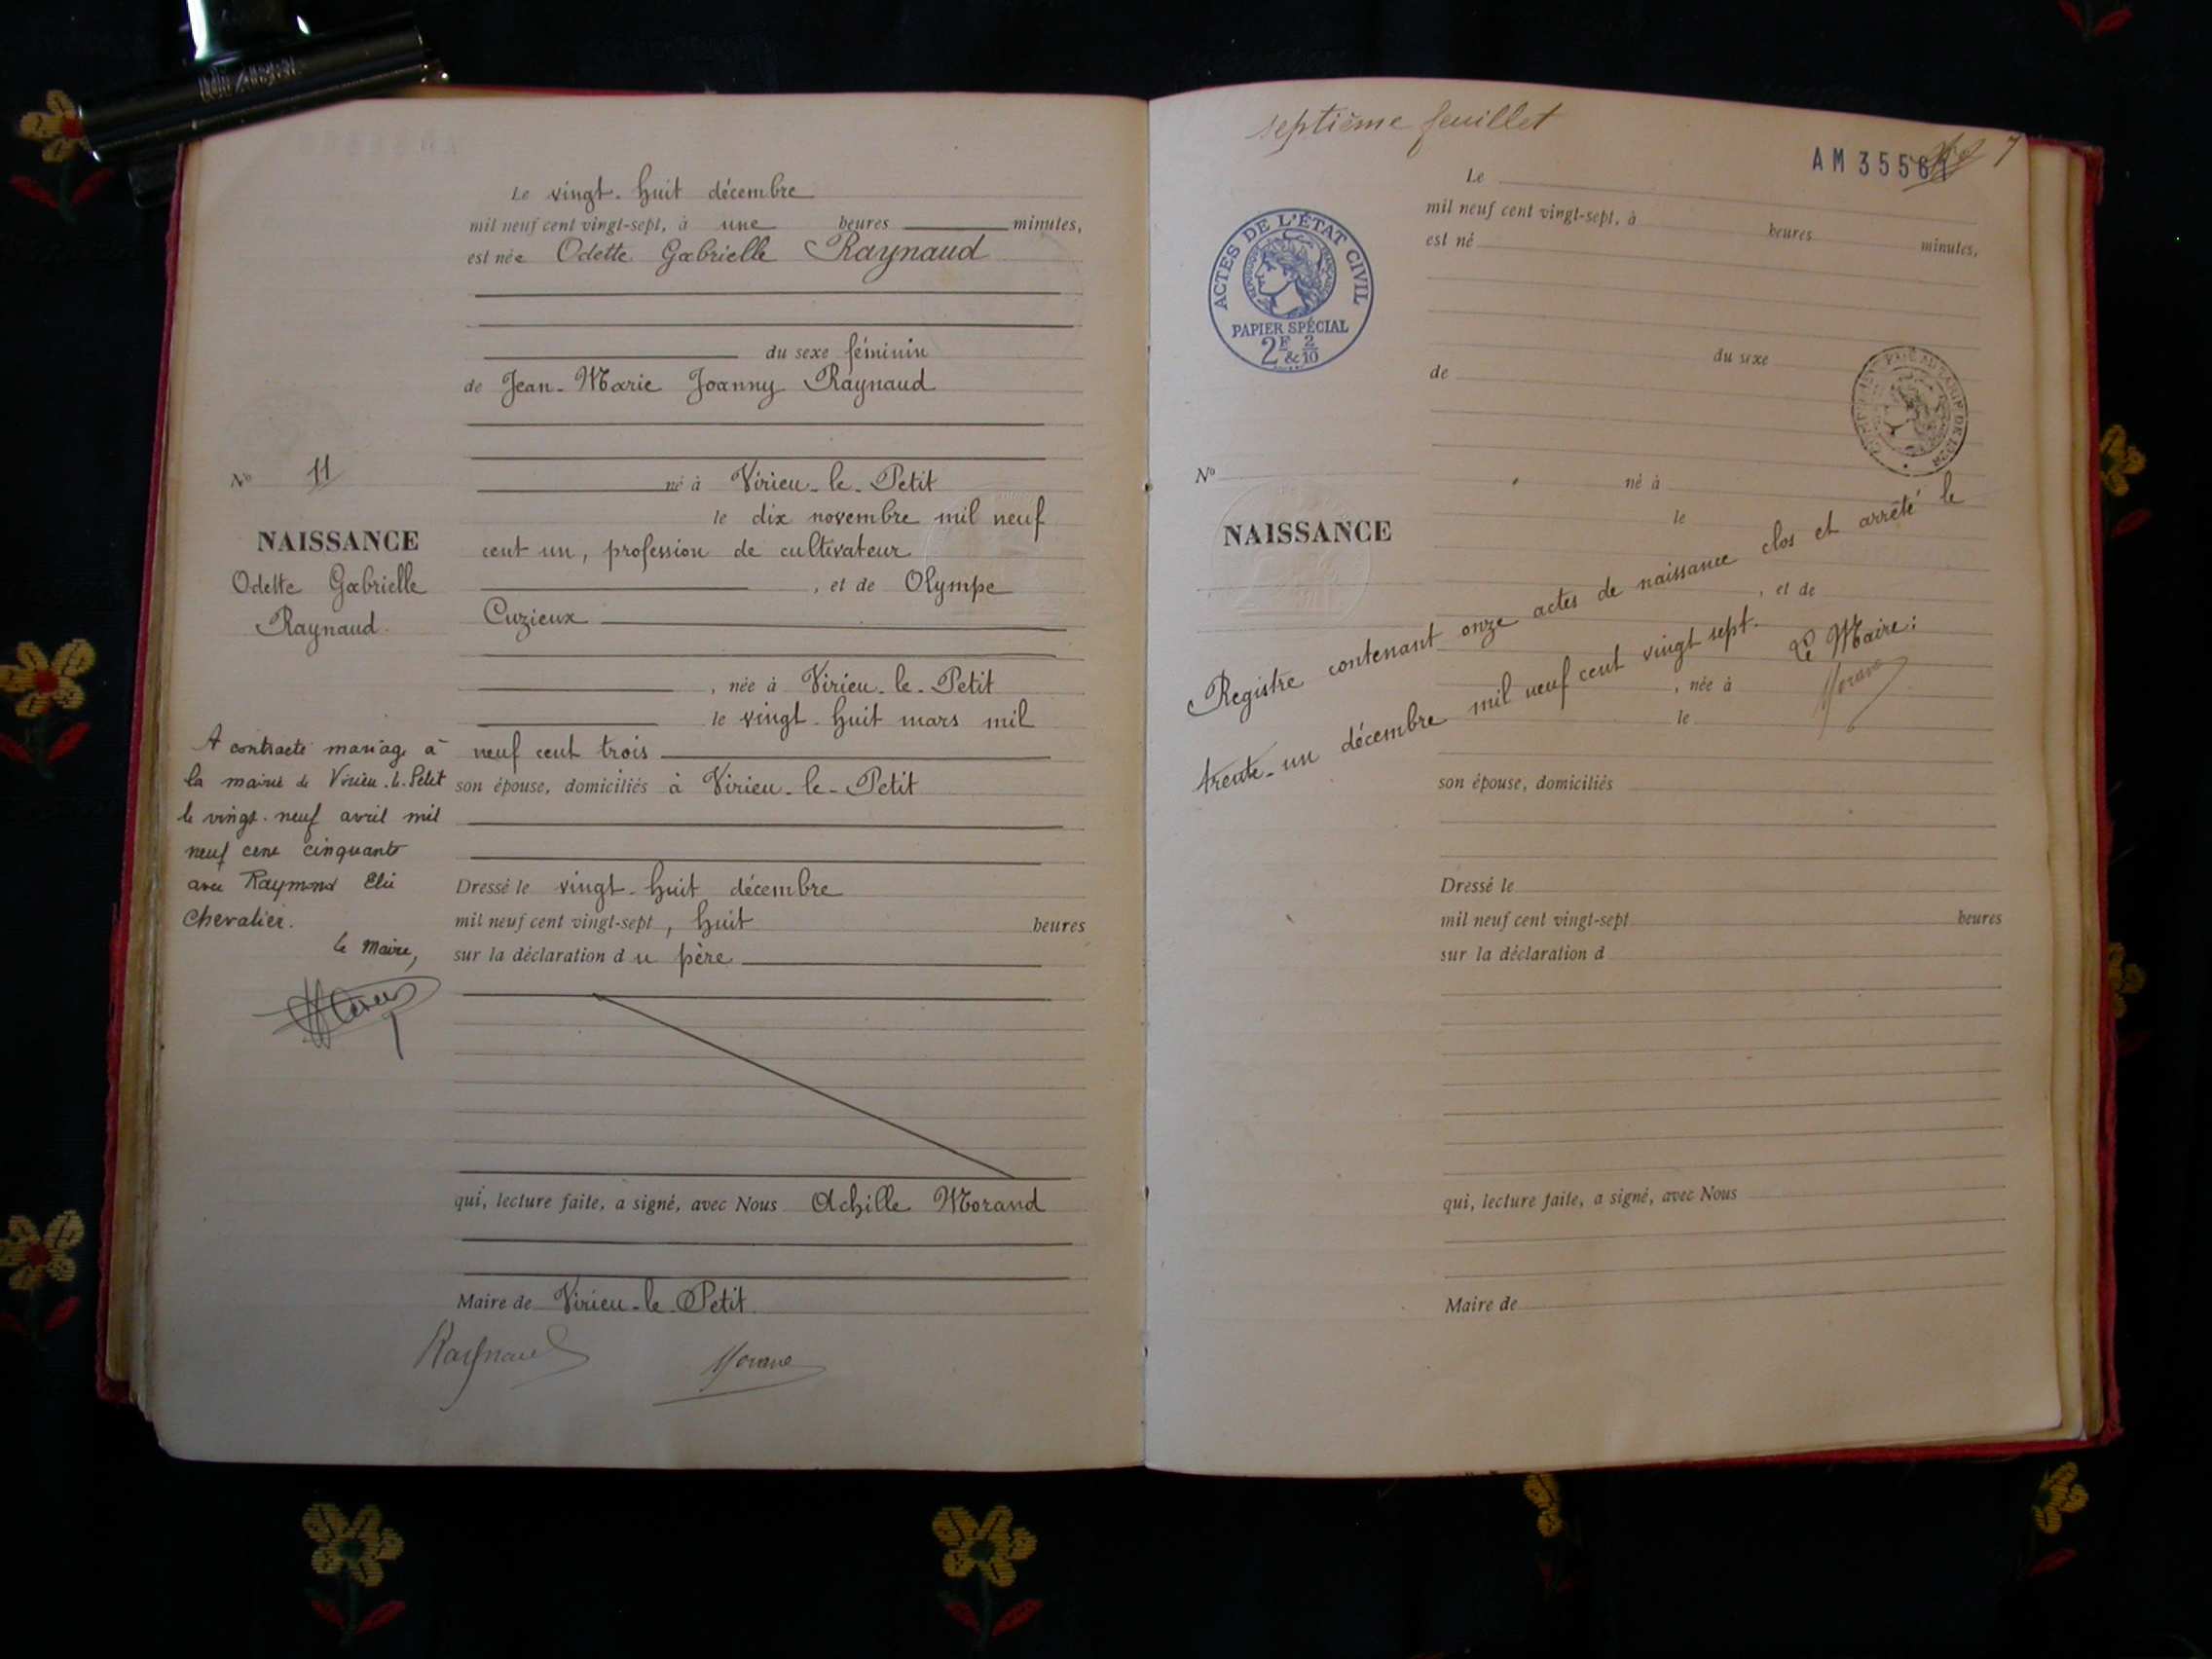 Le vingt-huit décembre
mil neuf cent vingt-sept, à une heures minutes,
est née Odette Gabrielle Raynaud
du sexe féminin
de Jean-Marie Joanny Raynaud
né à Virieu-le-Petit
le dix novembre mil neuf
cent un, profession de cultivateur
, et de Olympe
Cuzieux
, née à Virieu-le-Petit
le vingt-huit mars mil
neuf cent trois
son épouse, domiciliés à Virieu-le-Petit
Dressé le vingt-huit décembre
mil neuf cent vingt-sept, huit heures
sur la déclaration du père
qui, lecture faite, a signé, avec Nous Achille Morand
Maire de Virieu-le-Petit
Raynaud
Morand
No 11
NAISSANCE
Odette Gabrielle
Raynaud
A contracté mariage à
la mairie de Virieu-le-Petit
le vingt-neuf avril mil
neuf cent cinquante
avec Raymond Elie
Chevalier.
le Maire,
septième feuillet
7
AM 3556
ACTES DE L'ÉTAT CIVIL
RÉPUBLIQUE FRANÇAISE
PAPIER SPÉCIAL
2F & 2/10
Le
mil neuf cent vingt-sept, à heures minutes,
est né
du sexe
de
No
né à
NAISSANCE
le
, et de
, née à
le
Registre contenant onze actes de naissance clos et arrêté le
trente-un décembre mil neuf cent vingt sept.
Le Maire:
Morand
son épouse, domiciliés
Dressé le
mil neuf cent vingt-sept heures
sur la déclaration d
qui, lecture faite, a signé, avec Nous
Maire de